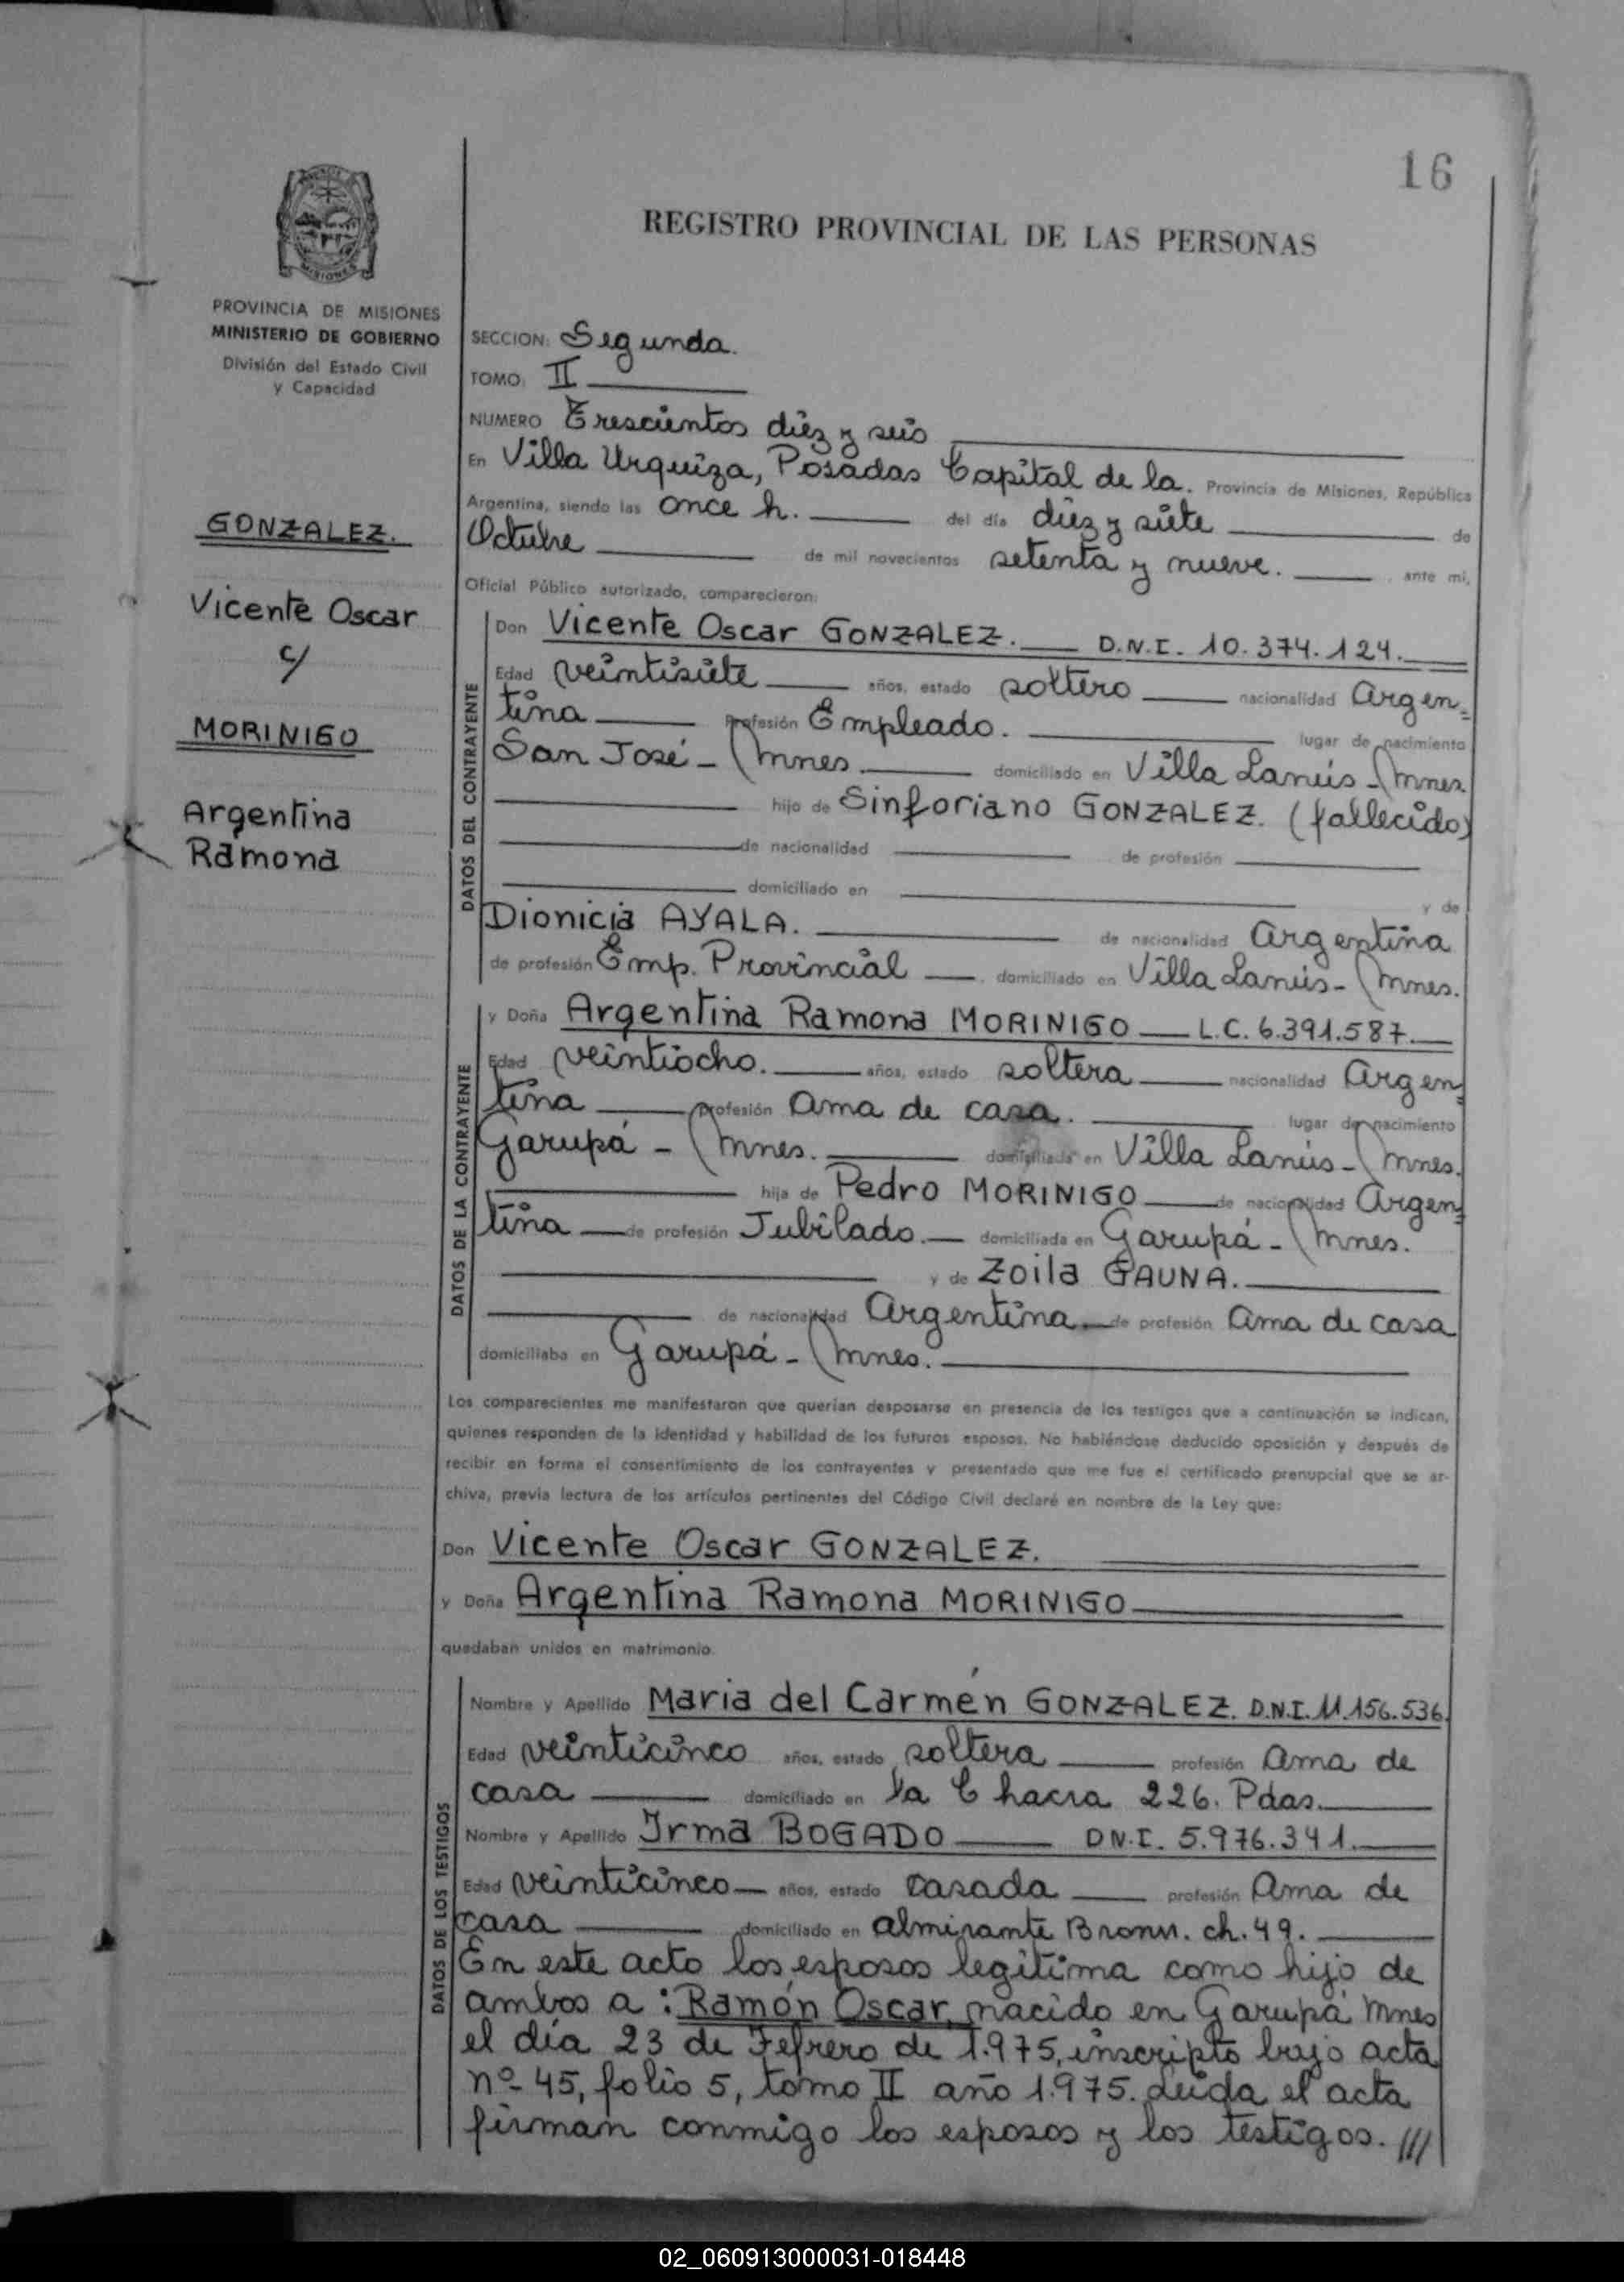 16
REGISTRO PROVINCIAL DE LAS PERSONAS
MISIONES
PROVINCIA DE MISIONES
MINISTERIO DE GOBIERNO
División del Estado Civil
y Capacidad
GONZALEZ.
Vicente Oscar
c/
MORINIGO
Argentina
Ramona
SECCION: Segunda.
TOMO: II
NUMERO Trescientos diez y seis
En Villa Urquiza, Posadas Capital de la. Provincia de Misiones, República
Argentina, siendo las once h. del día diez y siete de
Octubre de mil novecientos setenta y nueve. , ante mí,
Oficial Público autorizado, comparecieron:
DATOS DEL CONTRAYENTE
Don Vicente Oscar GONZALEZ. D.N.I. 10.374.124.
Edad veintisiete años, estado soltero nacionalidad Argen=
tina Profesión Empleado. lugar de nacimiento
San José - Mnes. domiciliado en Villa Lanús - Mnes.
hijo de Sinforiano GONZALEZ. (fallecido)
de nacionalidad de profesión
domiciliado en y de
Dionicia AYALA. de nacionalidad Argentina
de profesión Emp. Provincial , domiciliado en Villa Lanús - Mnes.
DATOS DE LA CONTRAYENTE
y Doña Argentina Ramona MORINIGO L.C. 6.391.587.
Edad veintiocho. años, estado soltera nacionalidad Argen=
tina profesión Ama de casa. lugar de nacimiento
Garupá - Mnes. domiciliada en Villa Lanús - Mnes.
hija de Pedro MORINIGO de nacionalidad Argen=
tina de profesión Jubilado. domiciliada en Garupá - Mnes.
y de Zoila GAUNA.
de nacionalidad Argentina de profesión Ama de casa
domiciliaba en Garupá - Mnes.
Los comparecientes me manifestaron que querían desposarse en presencia de los testigos que a continuación se indican,
quienes responden de la identidad y habilidad de los futuros esposos. No habiéndose deducido oposición y después de
recibir en forma el consentimiento de los contrayentes y presentado que me fue el certificado prenupcial que se ar-
chiva, previa lectura de los artículos pertinentes del Código Civil declaré en nombre de la Ley que:
Don Vicente Oscar GONZALEZ.
y Doña Argentina Ramona MORINIGO
quedaban unidos en matrimonio.
DATOS DE LOS TESTIGOS
Nombre y Apellido Maria del Carmén GONZALEZ. D.N.I. 11.156.536.
Edad veinticinco años, estado soltera profesión Ama de
casa domiciliado en la Chacra 226. Pdas.
Nombre y Apellido Irma BOGADO D.N.I. 5.976.341.
Edad veinticinco años, estado casada profesión Ama de
casa domiciliado en almirante Bronw. ch. 49.
En este acto los esposos legitima como hijo de
ambos a : Ramón Oscar, nacido en Garupá Mnes
el día 23 de Febrero de 1.975, inscripto bajo acta
nº 45, folio 5, tomo II año 1.975. Leida el acta
firman conmigo los esposos y los testigos. ///
02_060913000031-018448